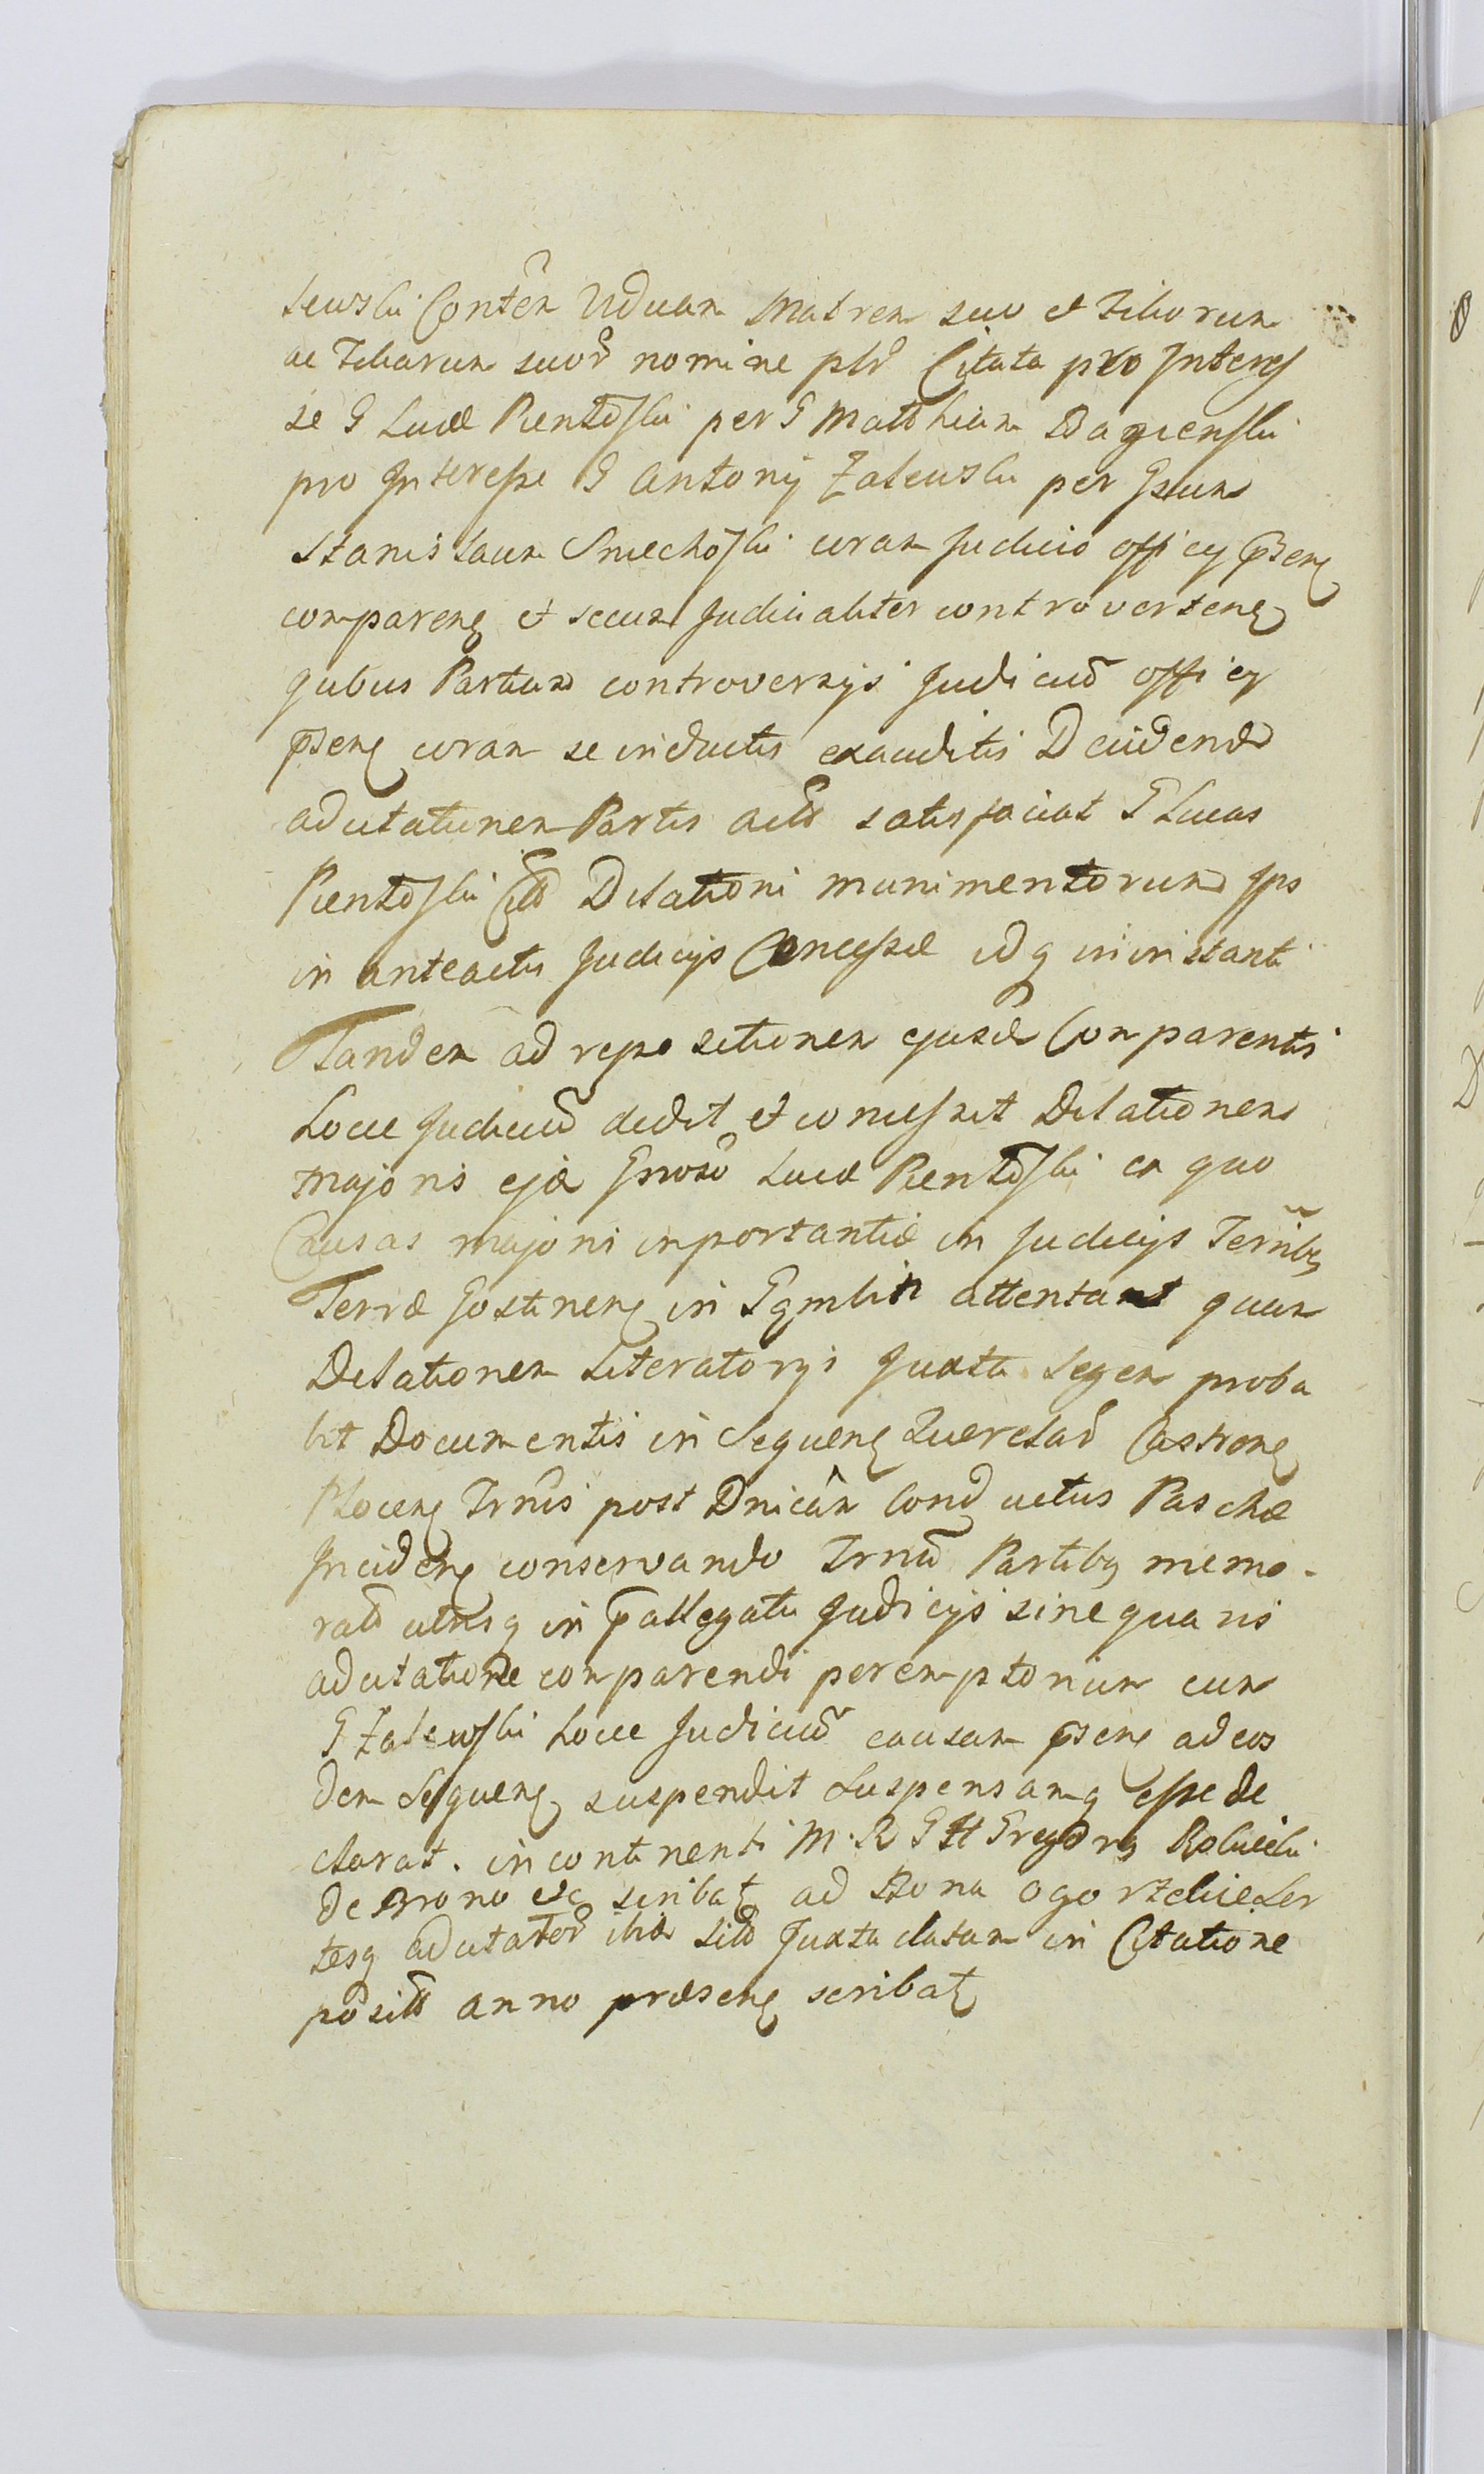 lewski Conten Viduam Matrem suo et Filiorum
ac Filiarum suor nomine ptr Citata pro Interes
se G Lucæ Rentoski per G Matthiam Bagienski
pro Interesse G Antonij Zalewski per Gsum
Stanislaum Smiechoski coram Judicio officy pseng
compareng et secum Judicialiter controverteng
qubus Partium controversijs Judicium officy
pseng coram se inductis exauditis Decidendo
ad citationem Partis acto satisfaciat G Lucas
Pientoski Citt Dilationi munimentorum Ips
in anteactis Judicijs Concessæ idq in instanti
Tandem ad repositionem ejusd Comparentis
Locce Judicium dedit et concessit Dilationem
majoris ejæ Gnoso Lucæ Pientoski ex quo
Causas majoris importantiæ in Judicijs Terribq
Terræ Gostineng in Gąmbin attentat quam
Dilationem Literatorijs Juxta Legem proba
bit Documentis in Sequeng Querelad Castreng
Ploceng Trnis post Dnicam Conductus Paschæ
Incideng conservando Trnum Partibq memo-
rats utrisq in pallegatis Judicijs sine quavis
adcitatione comparendi peremptorium cum
G Zalewski Locce Judicium causam pseng ad eos
dem Sequeng suspendit suspensamq esse de
clarat. in continenti M. R G H Gregorg
De Brono etc scribat ad Bona
tesq adcitator ibid sitt Juxta datam in Citatione
positt anno præseng scribat